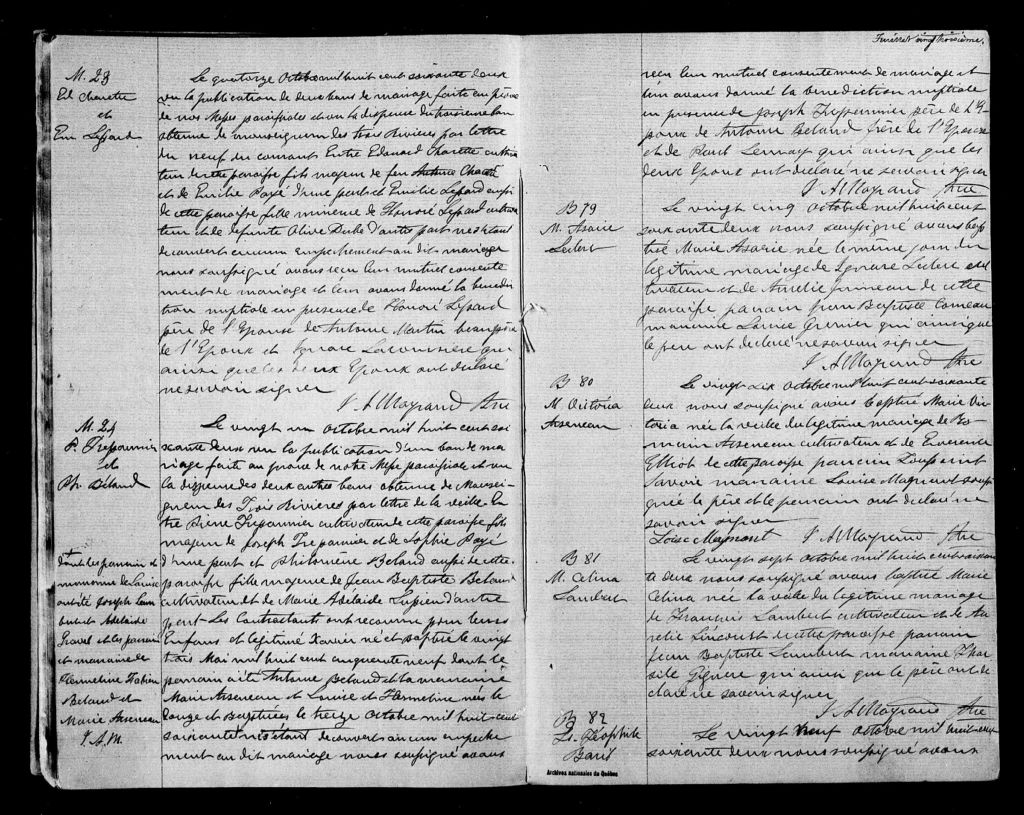 M. 23
Ed Charette
et
Em Lessard
Le quatorze Octobre mil huit cent soixante deux
vu la publication de deux bans de mariage faite au prône
de nos Messes paroissiales et vu la dispense du troisieme ban
obtenue de monseigneur des trois Rivieres par lettre
du neuf du courant Entre Edouard Charette cultiva
teur de cette paroisse fils majeur de feu Antoine Charette
et de Emilie Payé d'une part et Emilie Lessard aussi
de cette paroisse fille mineure de Honoré Lessard cultiva
teur et de défunte Olive Dubé d'autre part ne s'etant
decouvert aucun empechement au dit mariage
nous soussigné avons recu leur mutuel consente
ment de mariage et leur avons donné la benedic
tion nuptiale en presence de Honoré Lessard
père de l'Epouse de Antoine Martin beaupère
de l'Epoux et Ignace Lacoursière qui
ainsi que les deux Epoux ont déclaré
ne savoir signer
J A Mayrand Ptre
M. 24
P. Trépannier
et
Ph. Béland
Le vingt un octobre mil huit cent soi
xante deux vu la publication d'un ban de ma
riage faite au prone de notre Messe paroissiale et vu
la dispense des deux autres bans obtenue de Monsei
gneur des Trois Rivieres par lettre de la veille En
tre Pierre Trepannier cultivateur de cette paroisse fils
majeur de Joseph Trepannier et de Sophie Payé
d'une part et Philomène Béland aussi de cette
paroisse fille majeure de Jean Baptiste Beland
cultivateur et de Marie Adélaide Lupien d'autre
part. Les Contractants ont reconnu pour leurs
Enfans et légitimé Xavier né et baptisé le vingt
trois Mai mil huit cent cinquante neuf dont le
parrain a été Antoine Beland et la marraine
Marie Arseneau et Louise et Hermeline nées le
douze et Baptisées le treize Octobre mil huit cent
soixante ne s'étant decouvert aucun empeche
ment au dit mariage nous soussigné avons
+
dont les parrain et
marraine de Louise
ont été Joseph Lam
bert Adelaide
Gravel et les parrain
et marraine de
Hermeline Fabien
Beland et
Marie Arseneau
J. A. M.
Feuillet vingt troisième.
recu leur mutuel consentement de mariage et
leur avons donné la benediction nuptiale
en presence de Joseph Trepannier père de l'E
poux de Antoine Beland frère de l'Epouse
et de Paul qui ainsi que les
deux Epoux ont déclaré ne savoir signer
J A Mayrand Ptre
B 79
M. Asarie
Leclerc
Le vingt cinq octobre mil huit cent
soixante deux nous soussigné avons bap
tisé Marie Asarie née le même jour du
légitime mariage de Ignace Leclerc cul
tivateur et de Aurelie Juneau de cette
paroisse parrain Jean Baptiste Comeau
marraine Louise Grenier qui ainsi que
le pere ont declaré ne savoir signer
J A Mayrand Ptre
B 80
M. Victoria
Arseneau
Le vingt six octobre mil huit cent soixante
deux nous soussigné avons baptisé Marie Vic
toria née la veille du légitime mariage de Ro
main Arseneau cultivateur et de Emerence
Elliot de cette paroisse parrain Toussaint
Savoie marraine Louise Magnant soussi
gnée le père et le parrain ont declaré ne
savoir signer
Loise Magnant J A Mayrand Ptre
B 81
M. Celina
Lambert
Le vingt sept octobre mil huit cent soixan
te deux nous soussigné avons baptisé Marie
Celina née la veille du legitime mariage
de François Lambert cultivateur et de Au
relie Lincourt de cette paroisse parrain
Jean Baptiste Lambert marraine Thar
sile Gignac qui ainsi que le père ont dé
claré ne savoir signer
J A Mayrand Ptre
B 82
Ls. Théophile
Baril
Le vingt neuf octobre mil huit cent
soixante deux nous soussigné avons
Archives nationales du Québec